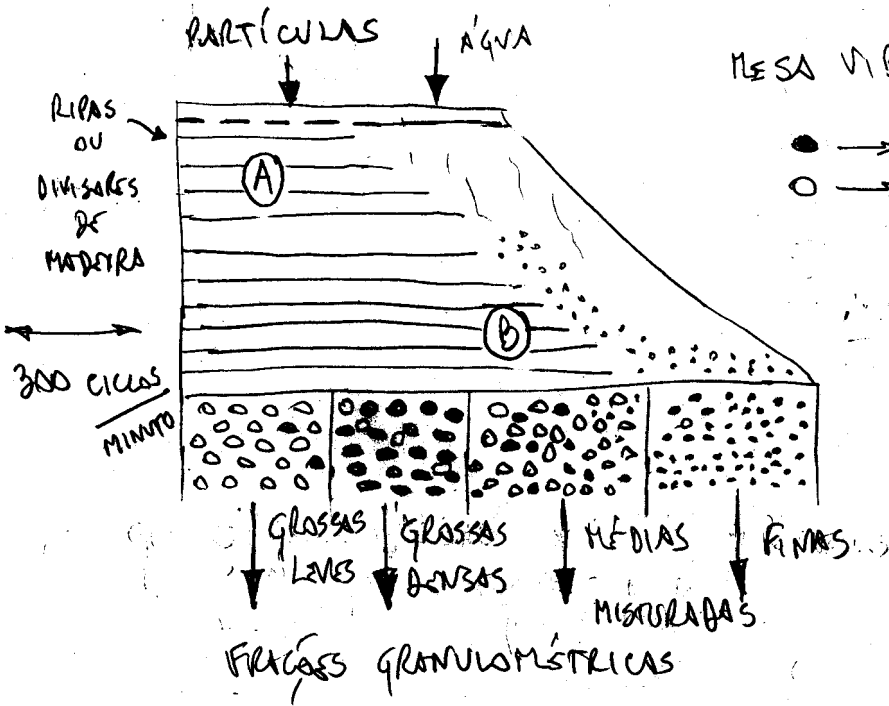 PARTÍCULAS
ÁGUA
MESA VIB
RIPAS
OU
DIVISORES
DE
MADEIRA
A
B
300 CICLOS
MINUTO
GROSSAS
LEVES
GROSSAS
DENSAS
MÉDIAS
MISTURADAS
FINAS
FRAÇÕES GRANULOMÉTRICAS